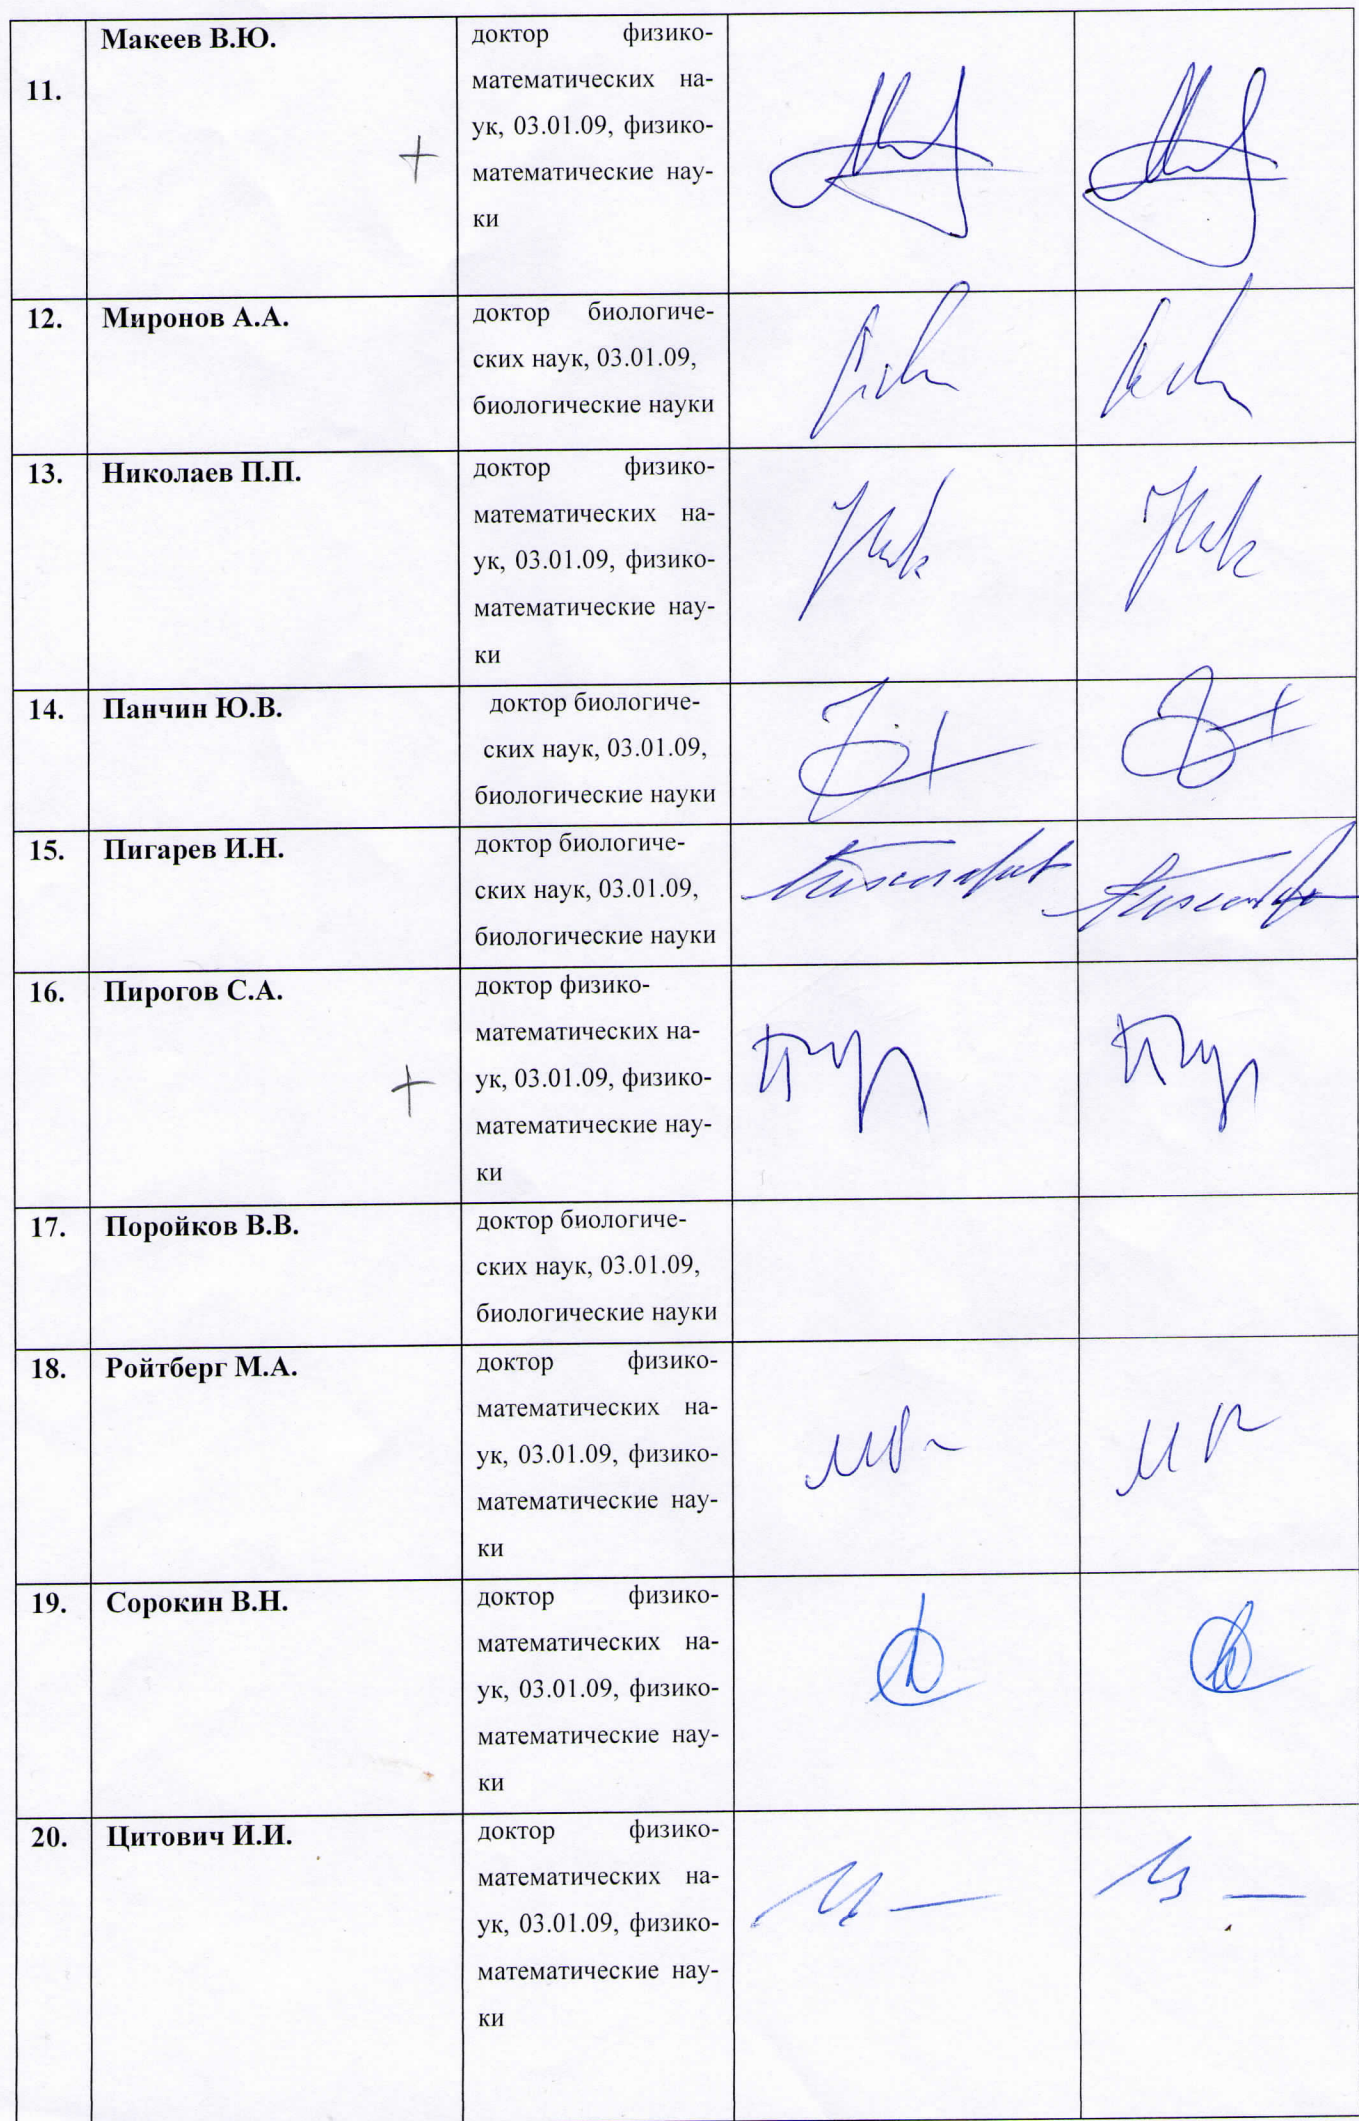 11.
Макеев В.Ю.
+
доктор физико-
математических на-
ук, 03.01.09, физико-
математические нау-
ки
12.
Миронов А.А.
доктор биологиче-
ских наук, 03.01.09,
биологические науки
13.
Николаев П.П.
доктор физико-
математических на-
ук, 03.01.09, физико-
математические нау-
ки
14.
Панчин Ю.В.
доктор биологиче-
ских наук, 03.01.09,
биологические науки
15.
Пигарев И.Н.
доктор биологиче-
ских наук, 03.01.09,
биологические науки
16.
Пирогов С.А.
+
доктор физико-
математических на-
ук, 03.01.09, физико-
математические нау-
ки
17.
Поройков В.В.
доктор биологиче-
ских наук, 03.01.09,
биологические науки
18.
Ройтберг М.А.
доктор физико-
математических на-
ук, 03.01.09, физико-
математические нау-
ки
19.
Сорокин В.Н.
доктор физико-
математических на-
ук, 03.01.09, физико-
математические нау-
ки
20.
Цитович И.И.
доктор физико-
математических на-
ук, 03.01.09, физико-
математические нау-
ки